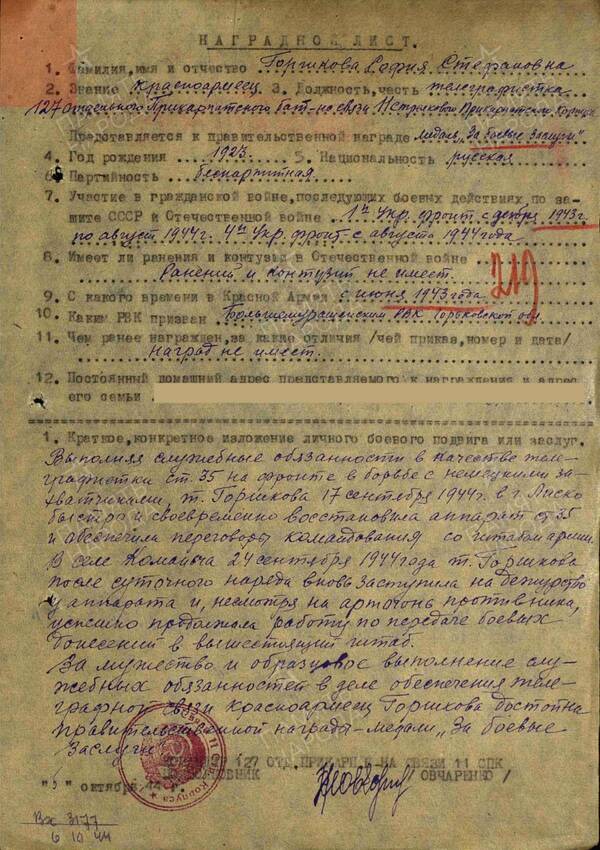 НАГРАДНОЙ ЛИСТ.
1. Фамилия, имя и отчество Горшкова София Степановна
2. Звание Красноармеец 3. Должность, часть телеграфистка
127 отдельного Прикарпатского бат-на связи 11 Стрелкового Прикарпатского Корпуса
Представляется к правительственной награде медаль "За боевые заслуги"
4. Год рождения 1923. 5. Национальность русская
6. Партийность беспартийная
7. Участие в гражданской войне, последующих боевых действиях, по за-
щите СССР и Отечественной войне 1й Укр. фронт с декабря 1943 г.
по август 1944 г. 4й Укр. фронт с августа 1944 года
8. Имеет ли ранения и контузии в Отечественной войне
Ранений и контузий не имеет.
219
9. С какого времени в Красной Армии с июня 1943 года
10. Каким РВК призван Большемурашкинским РВК Горьковской обл.
11. Чем ранее награжден, за какие отличия /чей приказ, номер и дата/
наград не имеет.
12. Постоянный домашний адрес представляемого к награждения и адрес
его семьи
1. Краткое, конкретное изложение личного боевого подвига или заслуг.
Выполняя служебные обязанности в качестве теле-
графистки ст. 35 на фронте в борьбе с немецкими за-
хватчиками, т. Горшкова 17 сентября 1944 г. в г. Лиско
быстро и своевременно восстановила аппарат ст 35
и обеспечила переговоры командования со штабом армии.
В селе Команьча 24 сентября 1944 года т. Горшкова
после суточного наряда вновь заступила на дежурство
у аппарата и, несмотря на артогонь противника,
успешно продолжала работу по передаче боевых
донесений в вышестоящий штаб.
За мужество и образцовое выполнение слу-
жебных обязанностей в деле обеспечения теле-
графной связи красноармеец Горшкова достойна
правительственной награды - медали "За боевые
заслуги"
127 ОТД. ПРИКАРП. Б-НА СВЯЗИ 11 СПК
ПОДПОЛКОВНИК ОВЧАРЕНКО /
Корпуса
"5" октября 44 г.
Вх 3177
6 10 44